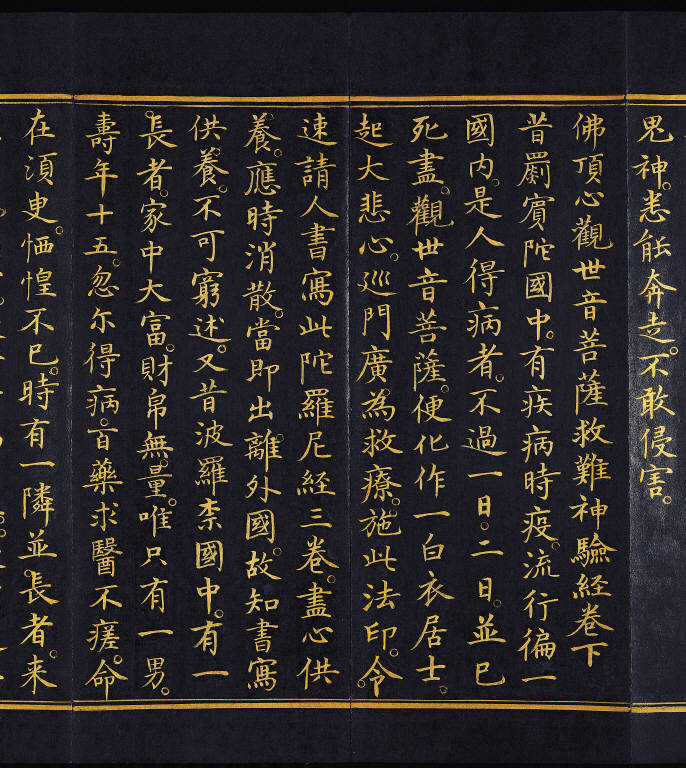 鬼神。悉能奔走。不敢侵害。
佛頂心觀世音菩薩救難神驗經卷下
昔罽賓陀國中。有疾病時疫。流行徧一
國內。是人得病者。不過一日。二日。並已
死盡。觀世音菩薩。便化作一白衣居士。
起大悲心。巡門廣為救療。施此法印。令
速請人書寫此陀羅尼經三卷。盡心供
養。應時消散。當即出離外國。故知書寫
供養。不可窮述。又昔波羅柰國中。有一
長者。家中大富。財帛無量。唯只有一男。
壽年十五。忽尔得病。百藥求醫不瘥。命
在須叟。恓惶不已。時有一隣並長者。来